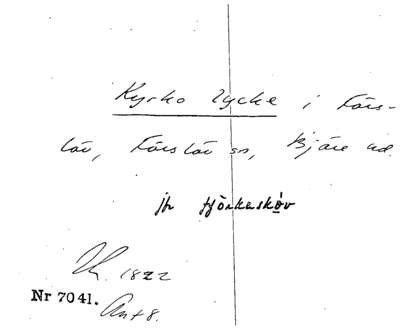 Kyrko lycke i Förs-
löv, Förslöv sn, Bjäre hd.
jfr Hjörkaskóv
1822
Nr 7041. Ant 8.